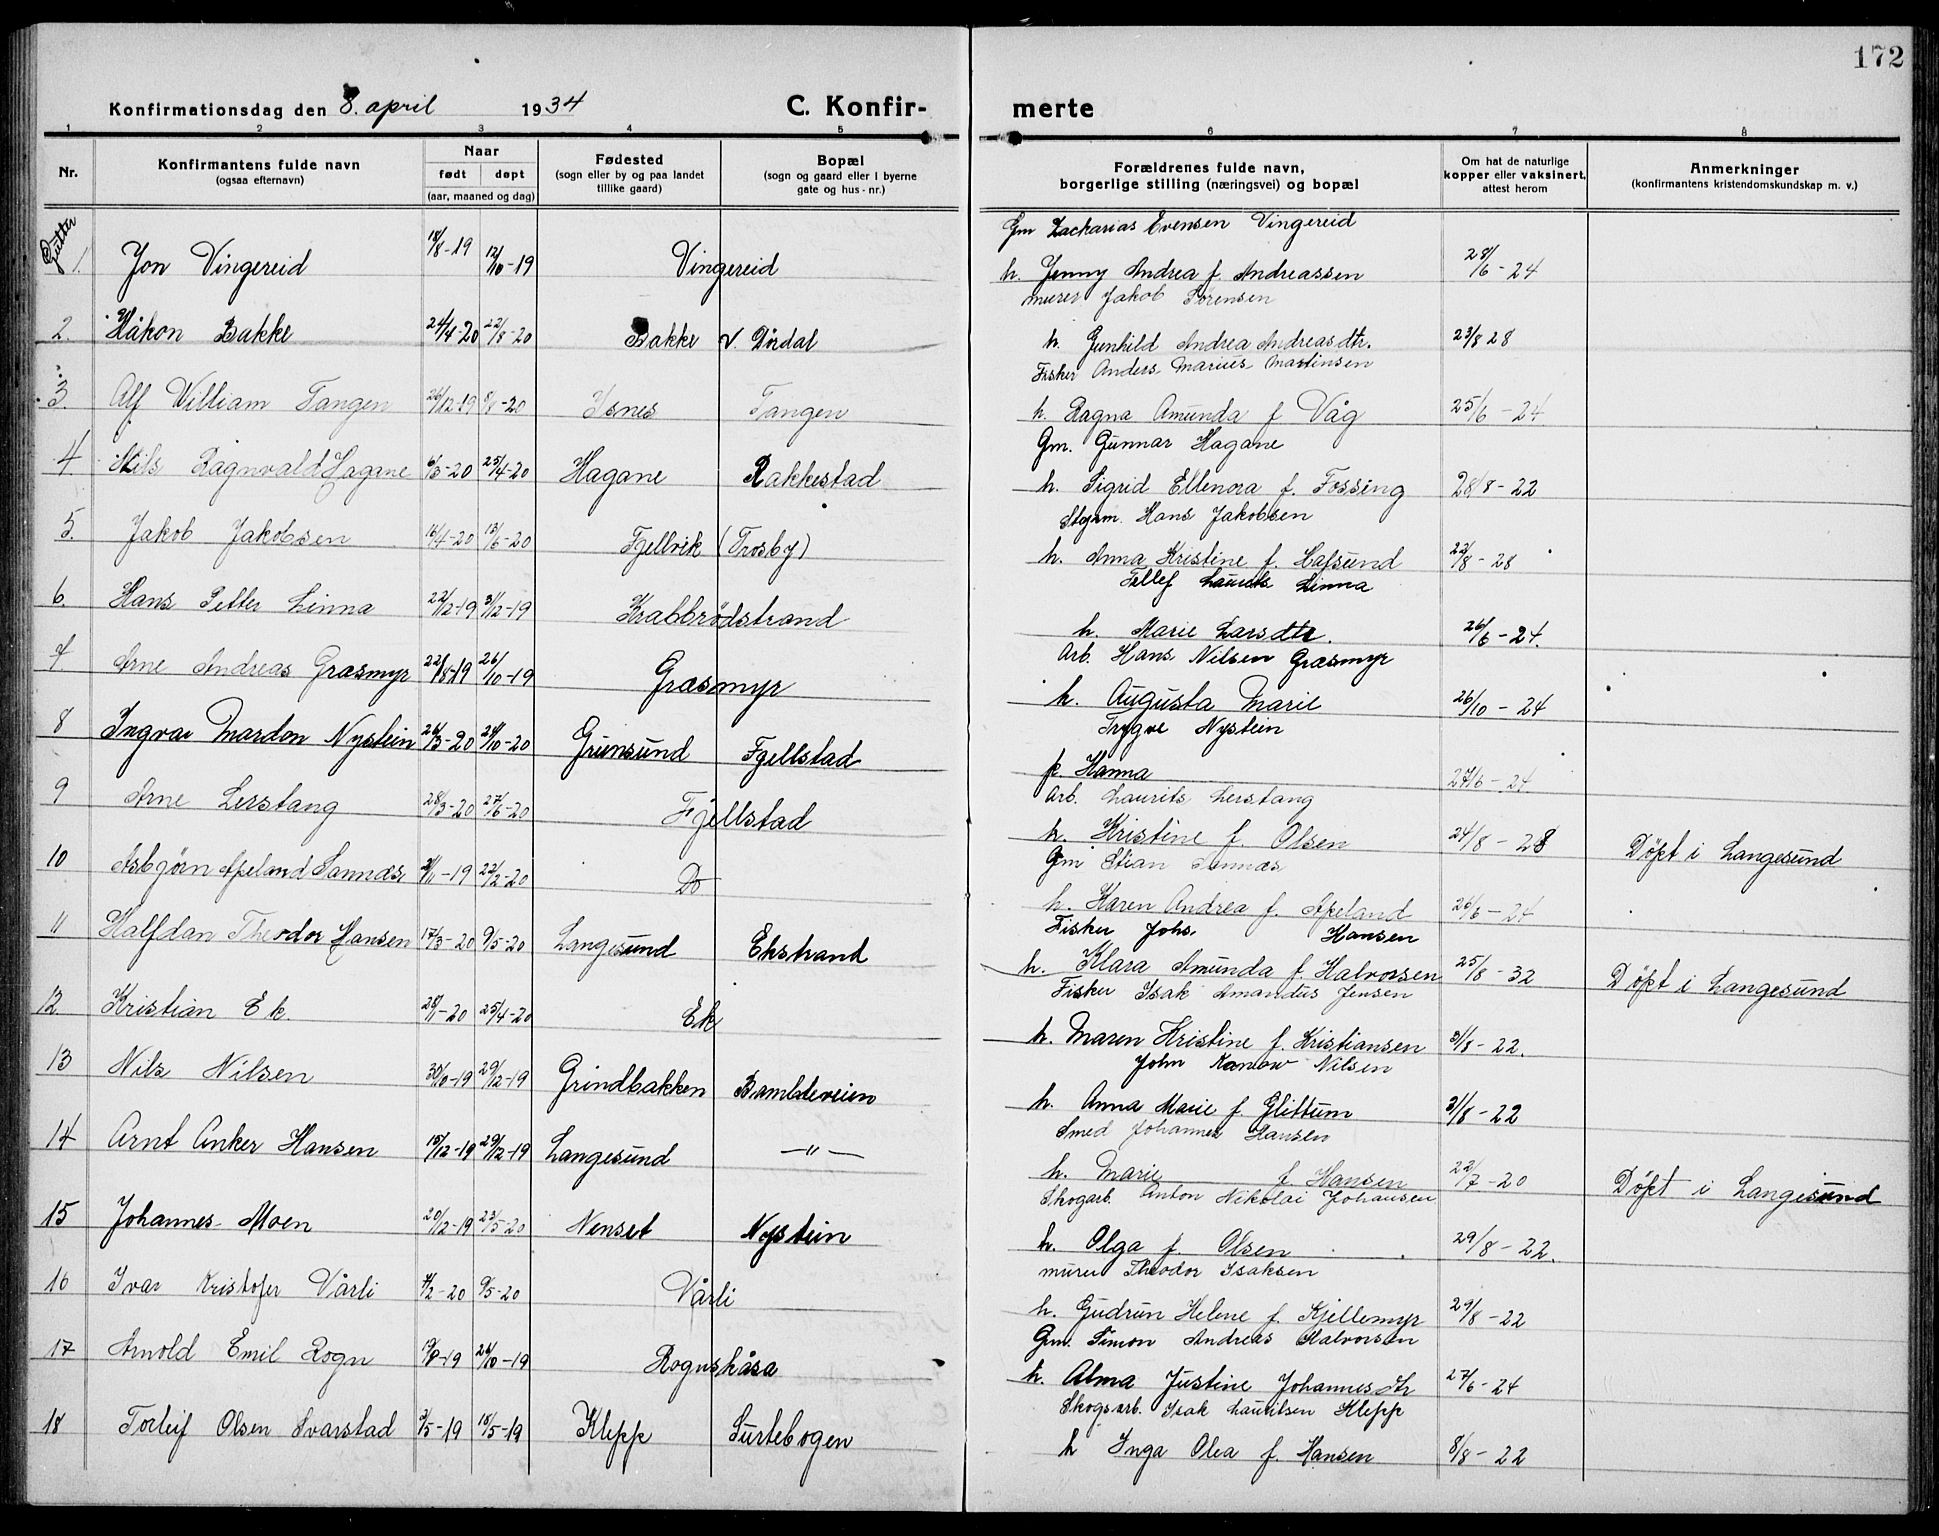 172
Konfirmationsdag den 8. april 1934
C. Konfir-
merte
1 2 3 4 5 6 7 8
Nr.
Konfirmantens fulde navn
(ogsaa efternavn)
Naar
født døpt
(aar, maaned og dag)
Fødested
(sogn eller by og paa landet
tillike gaard)
Bopæl
(sogn og gaard eller i byerne
gate og hus-nr.)
Forældrenes fulde navn,
borgerlige stilling (næringsvei) og bopæl
Om hat de naturlige
kopper eller vaksinert,
attest herom
Anmerkninger
(konfirmantens kristendomskundskap m. v.)
Gutter
Gm Zacharias Evensen Vingereid
1. Jon Vingereid 18/8-19 12/10-19 Vingereid h. Jenny Andrea f. Andreassen 28/6-24
murer Jakob Sørensen
2. Håkon Bakke 24/4-20 22/8-20 Bakke v. Dørdal h. Gunhild Andrea Andreasdtr. 23/8 28
Fisker Anders Marius Martinsen
3. Alf William Tangen 26/12-19 5/4-20 Isnes Tangen h. Ragna Amunda f. Våg 25/6-24
Gm. Gunnar Hagane
4 Nils Ragnvald Hagane 6/3-20 25/4-20 Hagane Rakkestad h. Sigrid Ellenora f. Fossing 28/8-22
Styrm. Hans Jakobsen
5. Jakob Jakobsen 16/4-20 13/6-20 Fjellvik (Trosby) h. Anna Kristine f. Hafsund 22/8-28
Tellef Laurits Linna
6. Hans Petter Linna 22/2-19 31/12-19 Krabbrødstrand h. Marie Larsdtr. 26/6-24.
Arb. Hans Nilsen Grasmyr
7 Arne Andreas Grasmyr 22/8-19 26/10-19 Grasmyr h. Augusta Marie 26/10-24
Trygve Nystein
8 Ingvar Mardon Nystein 26/3-20 24/10-20 Grunsund Fjellstad h. Hanna 27/6-24
Arb. Laurits Lerstang
9 Arne Lerstang 28/3-20 27/6-20 Fjellstad h. Kristine f. Olsen 24/8-28 Döpt i Langesund
Gm Stian Sannæs
10 Asbjörn Apeland Sannæs 21/11-19 22/2-20 Do h. Karen Andrea f. Apeland 26/6-24
Fisker Johs. Hansen
11 Halfdan Theodor Hansen 17/3-20 9/5-20 Langesund Ekstrand h. Klara Amunda f. Halvorsen 25/8-32 Döpt i Langesund
Fisker Isak Amandus Jensen
12 Kristian Ek. 28/1-20 25/4-20 Ek h. Maren Kristine f. Kristiansen 31/8-22.
John Kanow Nilsen
13 Nils Nilsen 30/10-19 29/12-19 Grindbakken Bambleveien h. Anna Marie f. Glittum 31/8-22
Smed Johannes Hansen
14 Arnt Anker Hansen 15/12-19 29/12-19 Langesund —"— h. Marie f. Hansen 22/7-20 Döpt i Langesund
Skogarb. Anton Nikolai Johansen
15 Johannes Moen 20/12-19 23/5-20 Nenset Nystein h. Olga f. Olsen 29/8-22.
murer Theodor Isaksen
16 Ivar Kristofer Vårli 4/2-20 9/5-20 Vårli h. Gudrun Helene f. Kjellemyr 29/8-22
Gm. Simon Andreas Halvorsen
17 Arnold Emil Rogn 17/9-19 26/10-19 Rognshåsa h. Alma Justine Johannesdtr 27/6-24
Skogsarb. Isak Lauritsen Klepp
18 Torleif Olsen Svarstad 3/5-19 18/5-19 Klepp Surtebogen h Inga Olea f. Hansen 8/8-22